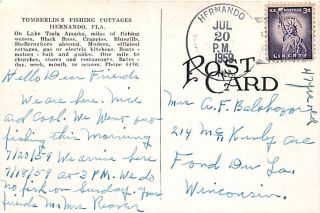 TOMBERLIN'S FISHING COTTAGES
HERNANDO, FLA.
On Lake Tsala Apopka, miles of fishing
waters. Black Bass, Crappies, Bluegills,
Shellcrackers abound. Modern, efficient
cottages, gas or electric kitchens. Boats -
motors - bait and guide. One mile to
churches, stores and restaurants. Rates -
day, week, month, or season. Phone
Hello Dear Friends
We are here. Nice
and Cool. We were out
fishing this morning
7/20/59 We arrive here
7/18/59 at 3 PM. We do
no fish on Sunday. Your
friends Mr Mrs
HERNANDO
JUL
20
P.M.
1959
FLA.
U.S. POSTAGE
3¢
LIBERTY
POST
CARD
Mrs A. F.
214
Fond Du Lac
Wisconsin.